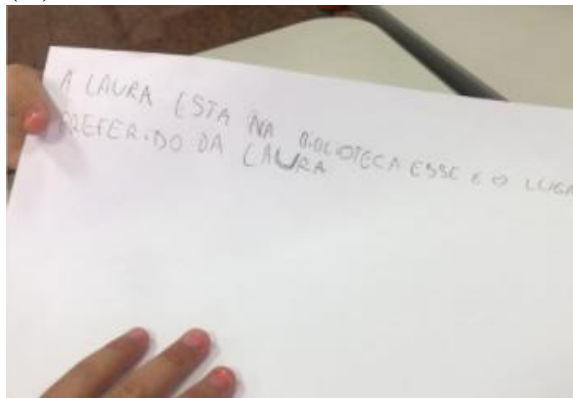 A LAURA ESTA NA BIBLIOTECA ESSE E O LUGA
PREFERIDO DA LAURA